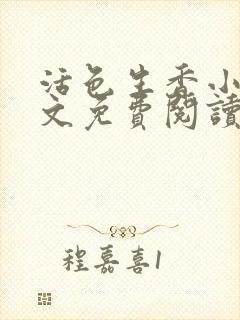 活色生香小
文免費閱讀
程嘉喜1